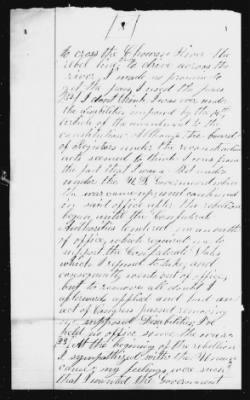 to cross the Chowan River the
rebel to drive across the
river. I made no promise to
get the pass, I used the pass
I don't think I was ever under
the disabilities imposed by the 14th
article of the amendments to the
constitution. Although the board
of registers under the reconstruction
acts seemed to think I was from
the fact that I was a
under the U.S. Government when
the war came up and continued
in said office after the rebellion
began until the Confederate
Authorities required an oath
of office, which required me to
support the Confederate States
which I refused to take, and
consequently went out of office,
but to remove all doubt I
afterwards applied and had an
act of Congress passed removing
my supposed Disabilities, I've
held no office since the war.
At the beginning of the rebellion
I sympathized with the Union
cause; my feelings were such
that I wanted the Government